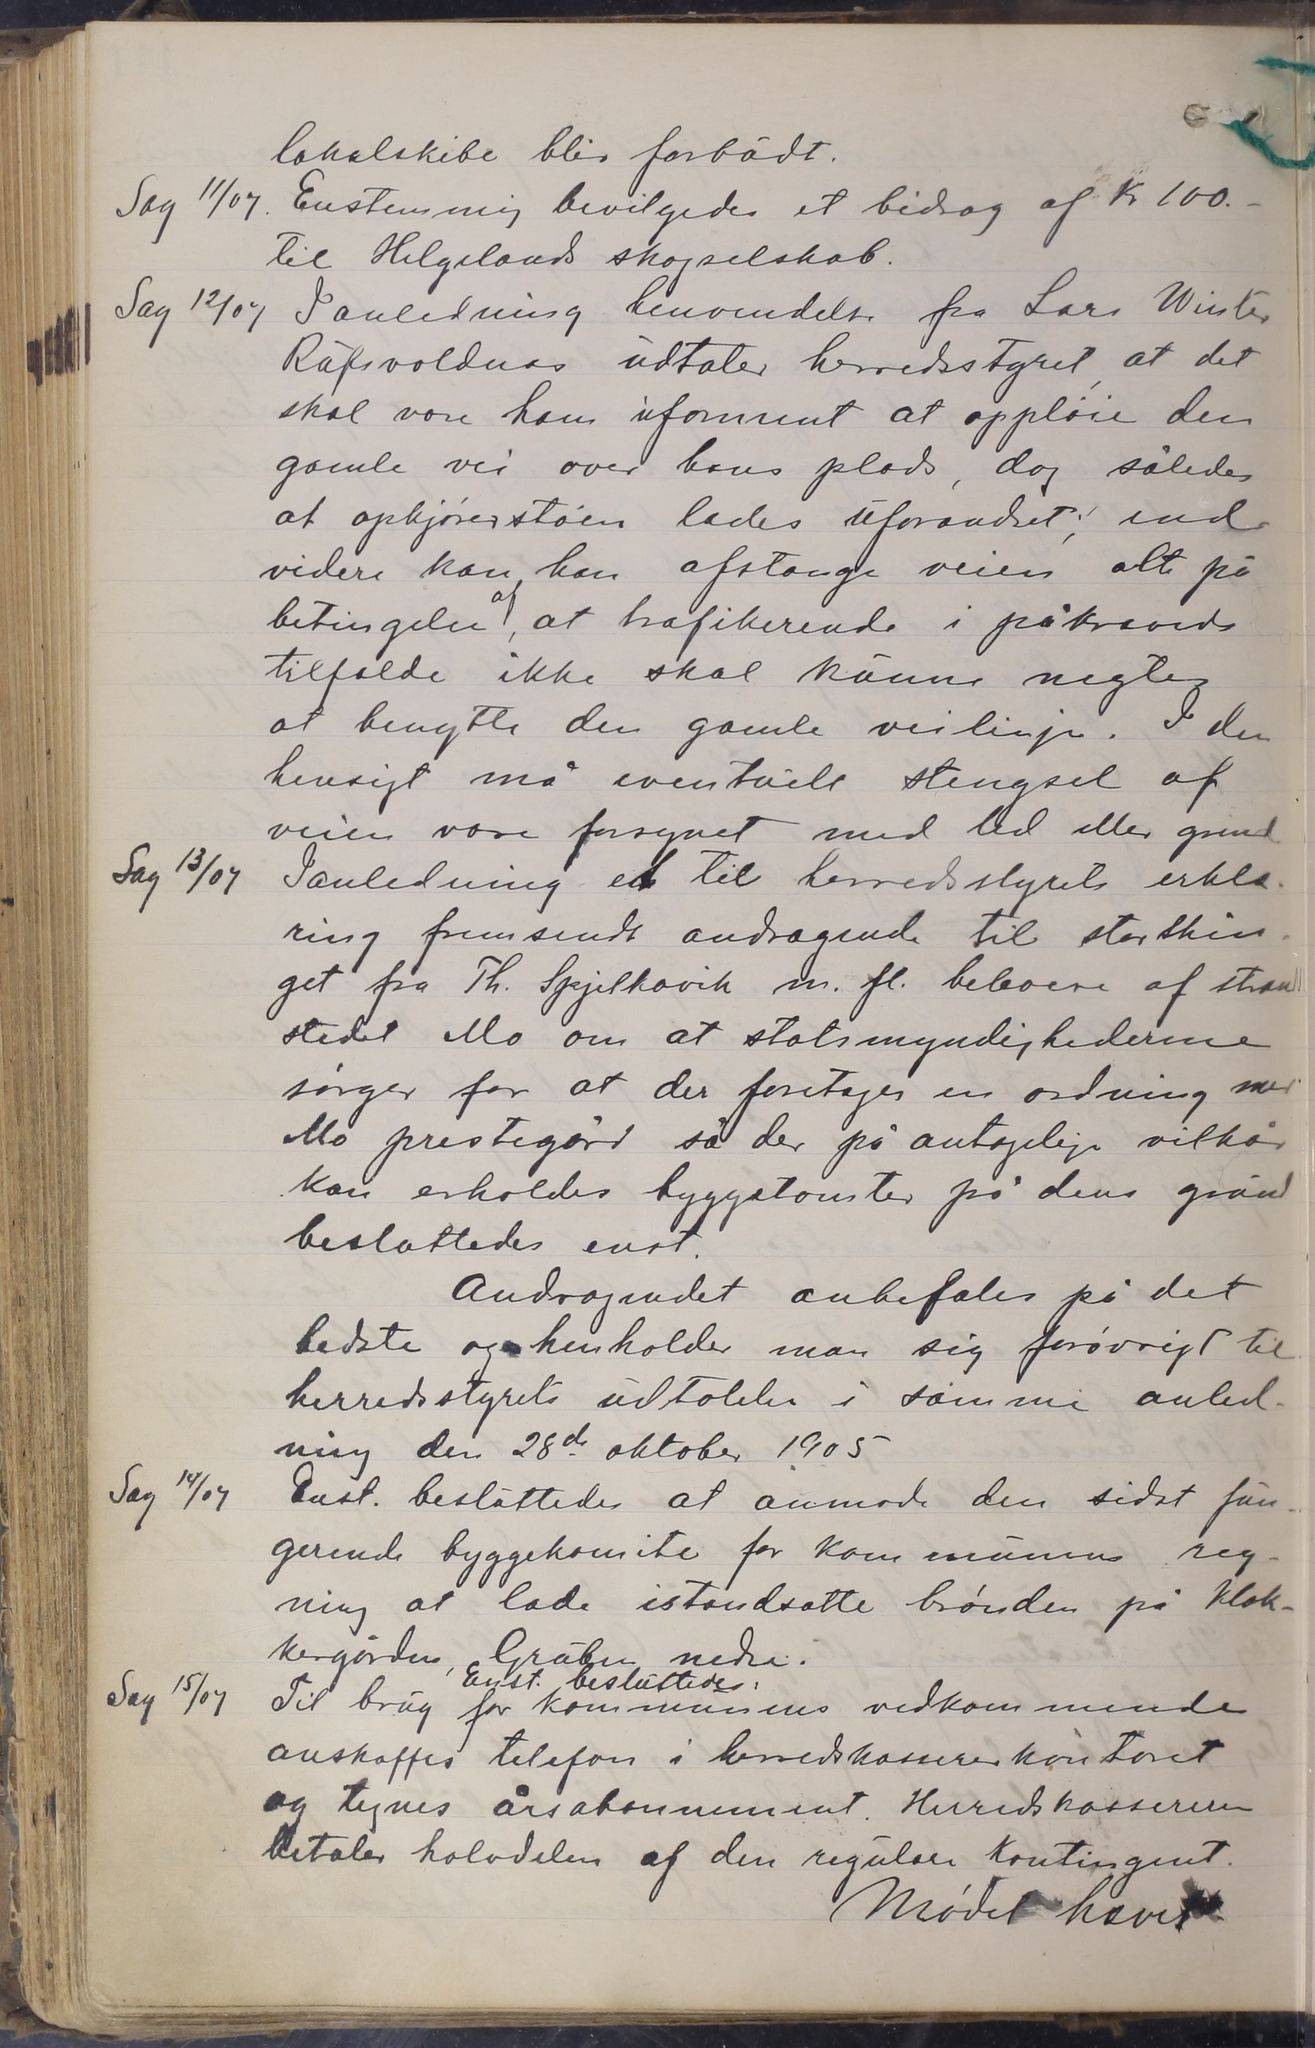 lokalskibe blir forbudt.
Sag 11/07. Enstemmig bevilgedes et bidrag af Kr 100.-
til Helgelands skogselskab.
Sag 12/07 I anledning henvendelse fra Lars Winter
Rufsvoldnæs udtaler herredsstyret, at det
skal være ham uforment at oppløie den
gamle vei over hans plads, dog således
at opkjørerstøen lades uforandret; end-
videre kan han afstænge veien alt på
betingelse af, at trafikerende i påkræved
tilfælde ikke skal kunne negtes
at benytte den gamle veilinje. I den
hensigt må eventuelt stengsel af
veien være forsynet med led eller grind
Sag 13/07 I anledning et til herredsstyrets erklæ-
ring fremsendt andragende til storthin-
get fra Th. Spjelkavik m. fl. beboere af strand
stedet Mo om at statsmyndighederne
sørger for at der foretages en ordning med
Mo prestegård så der på antagelige vilkår
kan erholdes byggetomter på dens grund
besluttedes enst.
Andragendet anbefales på det
bedste og henholder man sig forøvrigt til
herredsstyrets udtalelse i samme anled-
ning den 28de oktober 1905
Sag 14/07 Enst. besluttedes at anmode den sidst fun-
gerende byggekomite for kommunens reg-
ning at lade istandsætte brønden på klok-
kergården, Gruben nedre.
Enst. besluttedes:
Sag 15/07 Til brug for kommunens vedkommende
anskaffes telefon i herredskassererkontoret
og tegnes årsabonnement. Herredskassereren
betaler halvdelen af den regulære kontingent.
Mødet hævet